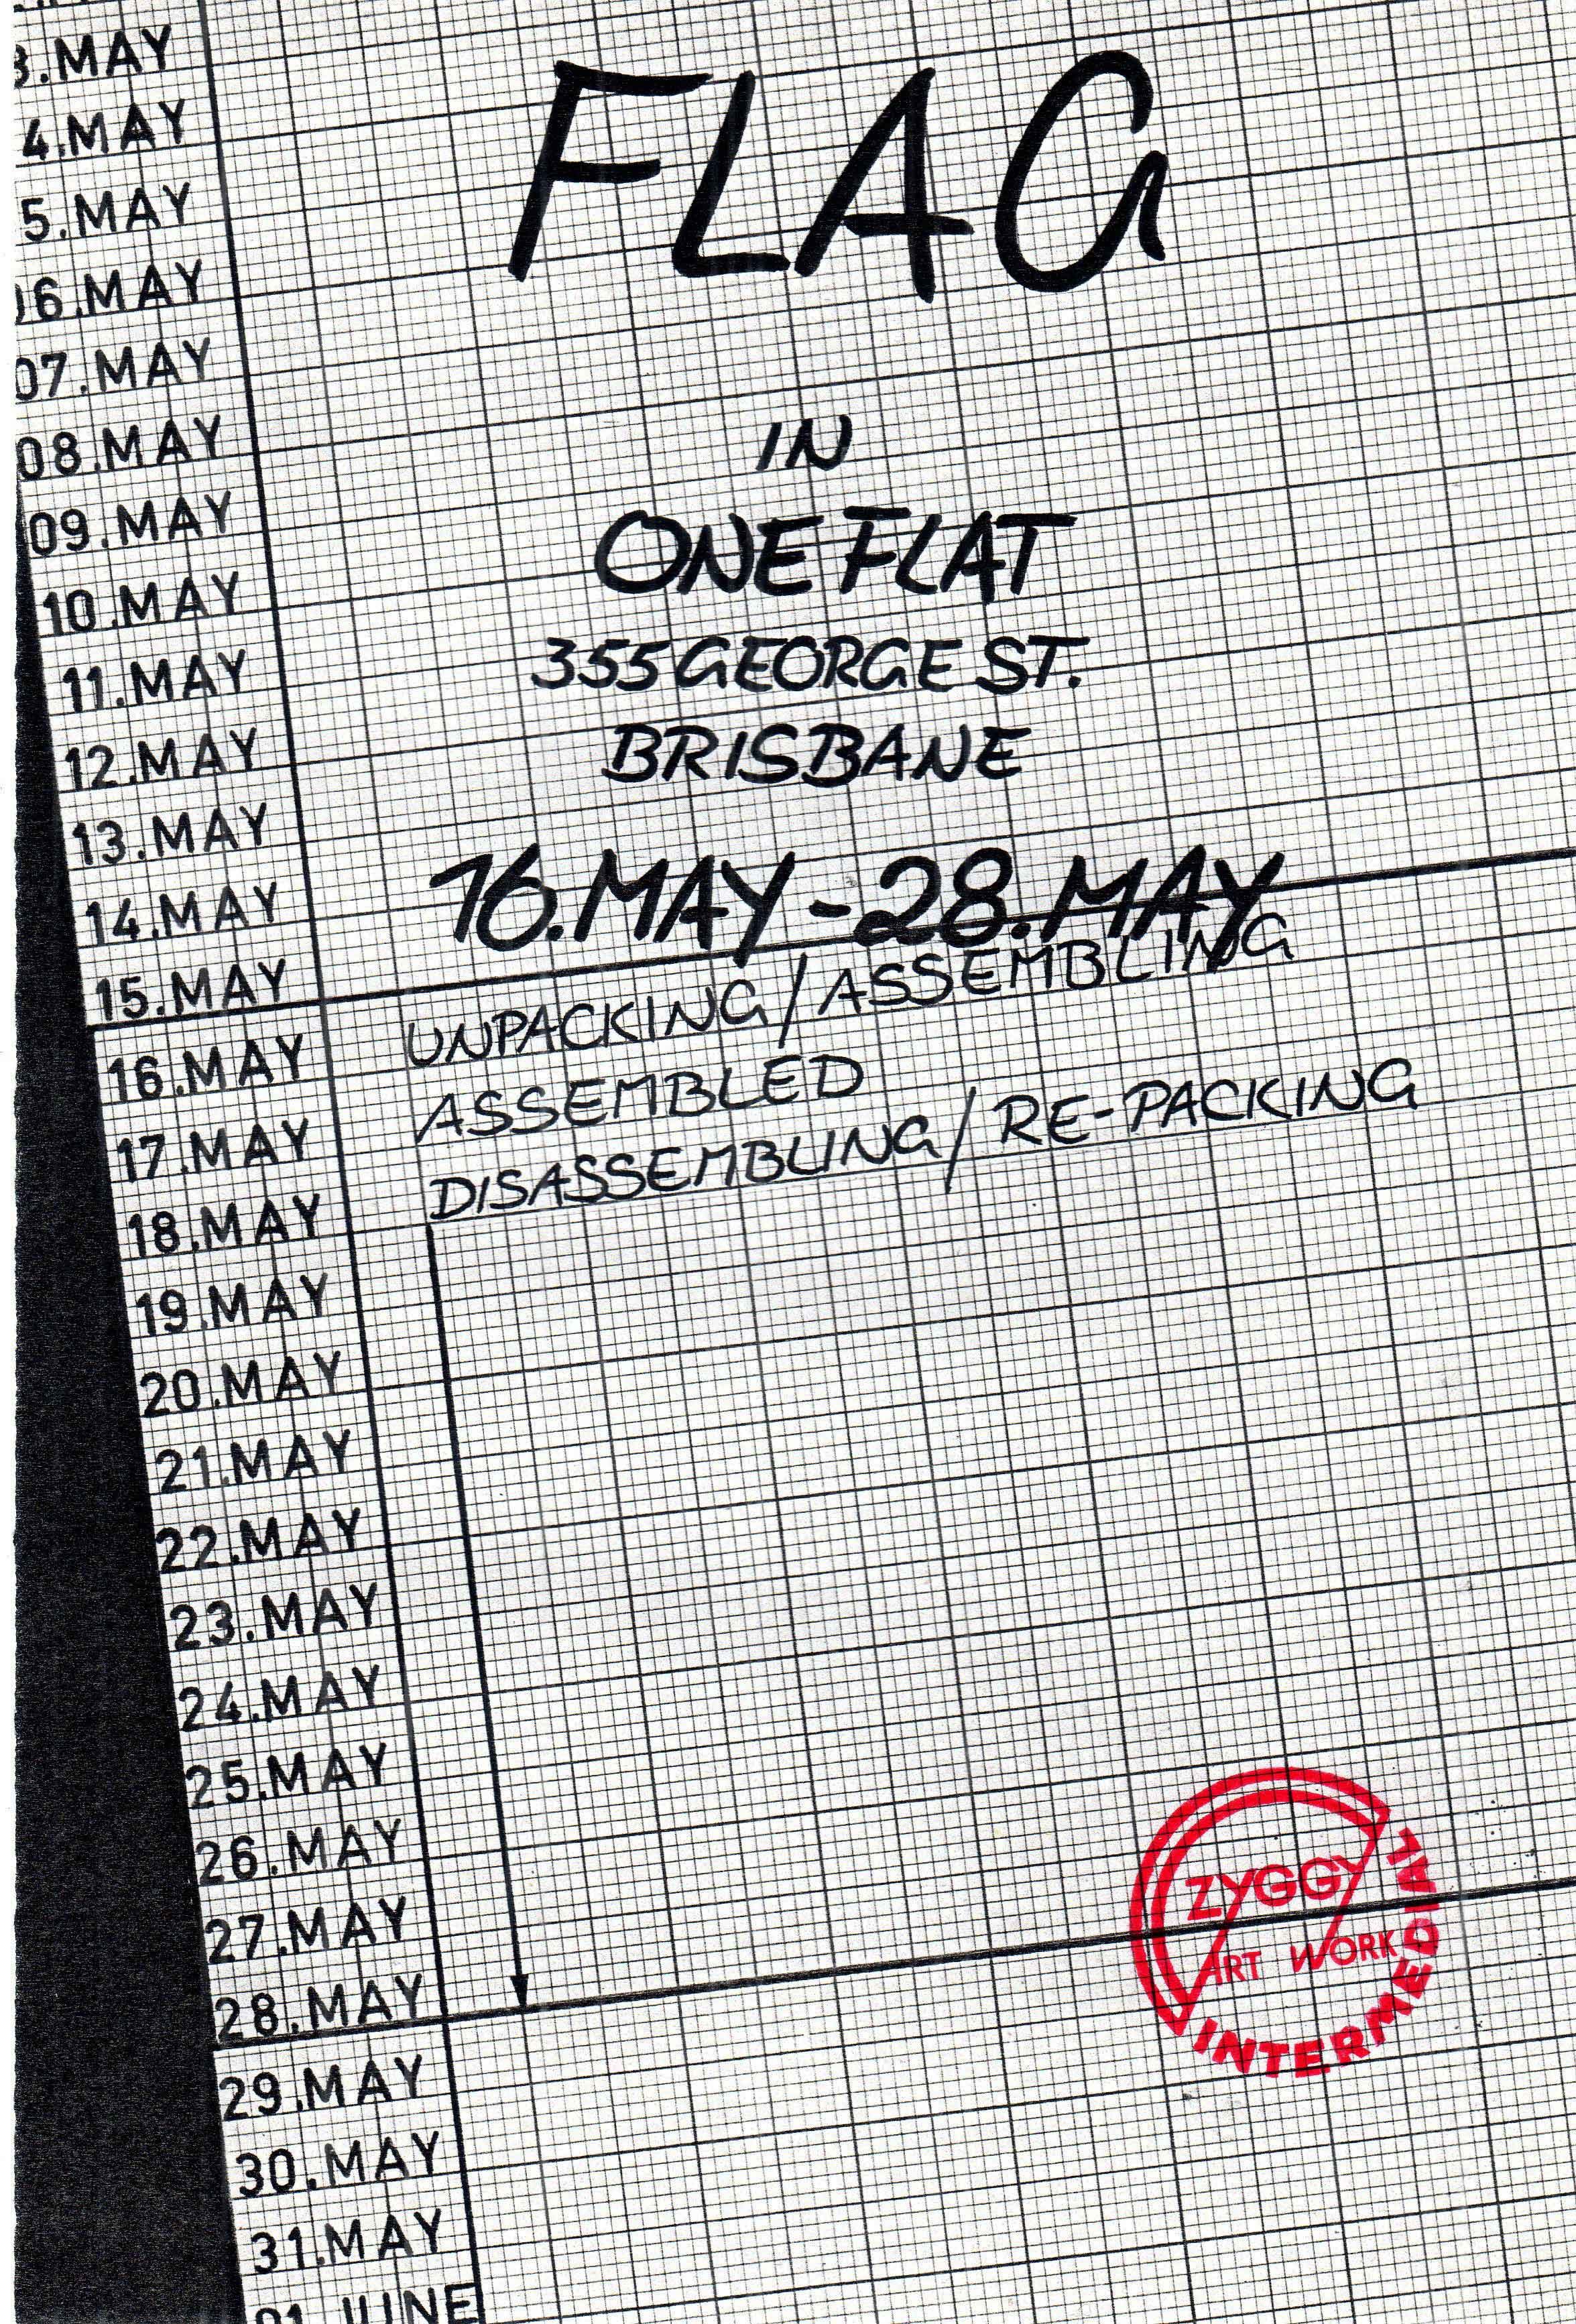 3.MAY
4.MAY
5.MAY
06.MAY
07.MAY
08.MAY
09.MAY
10.MAY
11.MAY
12.MAY
13.MAY
14.MAY
15.MAY
16.MAY
17.MAY
18.MAY
19.MAY
20.MAY
21.MAY
22.MAY
23.MAY
24.MAY
25.MAY
26.MAY
27.MAY
28.MAY
29.MAY
30.MAY
31.MAY
01.JUNE
FLAG
IN
ONE FLAT
355 GEORGE ST.
BRISBANE
16.MAY - 28.MAY
UNPACKING / ASSEMBLING
ASSEMBLED
DISASSEMBLING / RE-PACKING
ZYGGY
ART WORK
INTERMEDIAT